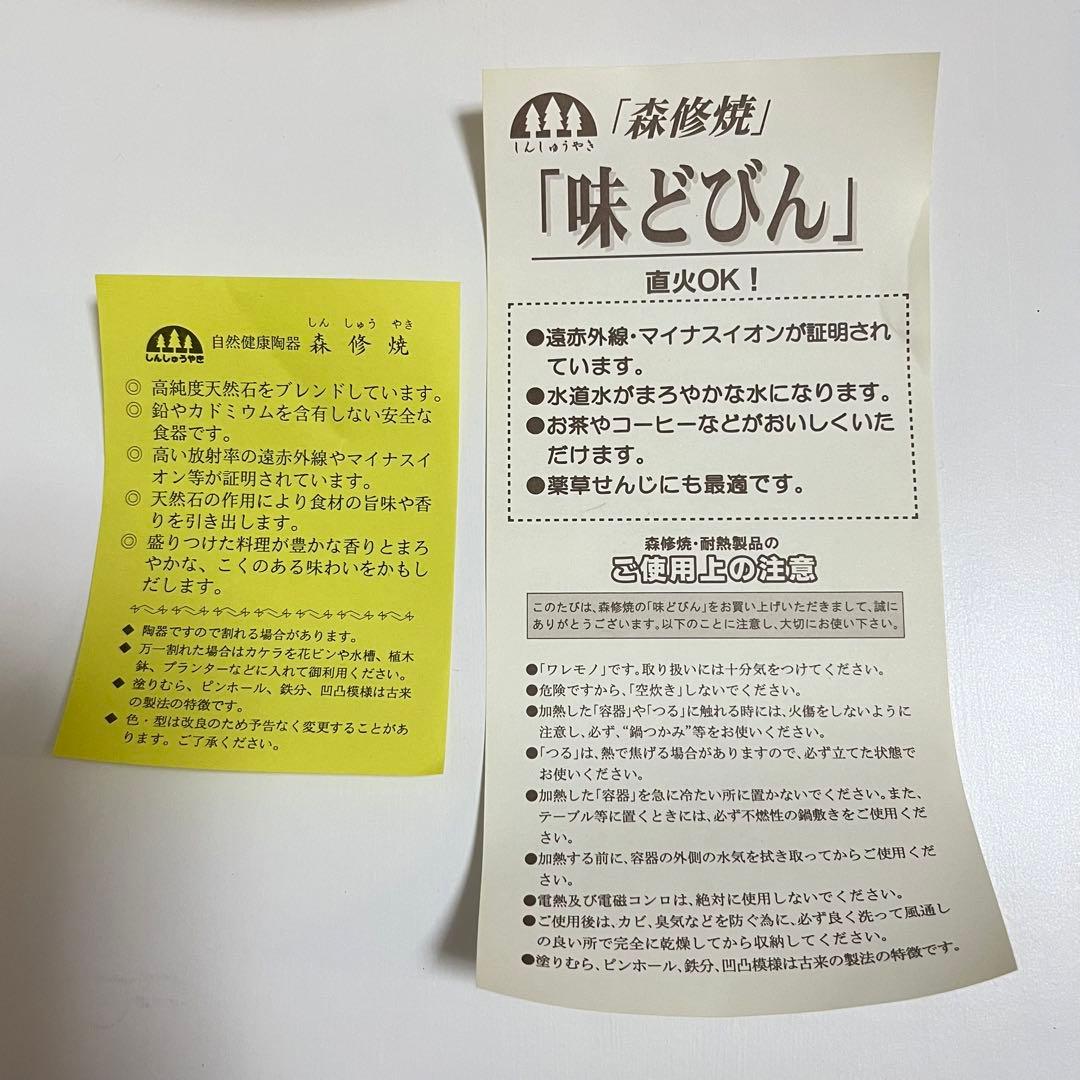 しんしゅうやき
自然健康陶器 森修焼
しん しゅう やき
◎ 高純度天然石をブレンドしています。
◎ 鉛やカドミウムを含有しない安全な
食器です。
◎ 高い放射率の遠赤外線やマイナスイ
オン等が証明されています。
◎ 天然石の作用により食材の旨味や香
りを引き出します。
◎ 盛りつけた料理が豊かな香りとまろ
やかな、こくのある味わいをかもし
だします。
◆ 陶器ですので割れる場合があります。
◆ 万一割れた場合はカケラを花ビンや水槽、植木
鉢、プランターなどに入れて御利用ください。
◆ 塗りむら、ピンホール、鉄分、凹凸模様は古来
の製法の特徴です。
◆ 色・型は改良のため予告なく変更することがあ
ります。ご了承ください。
しんしゅうやき
「森修焼」
「味どびん」
直火OK！
●遠赤外線・マイナスイオンが証明され
ています。
●水道水がまろやかな水になります。
●お茶やコーヒーなどがおいしくいた
だけます。
●薬草せんじにも最適です。
森修焼・耐熱製品の
ご使用上の注意
このたびは、森修焼の「味どびん」をお買い上げいただきまして、誠に
ありがとうございます。以下のことに注意し、大切にお使い下さい。
●「ワレモノ」です。取り扱いには十分気をつけてください。
●危険ですから、「空炊き」しないでください。
●加熱した「容器」や「つる」に触れる時には、火傷をしないように
注意し、必ず、“鍋つかみ”等をお使いください。
●「つる」は、熱で焦げる場合がありますので、必ず立てた状態で
お使いください。
●加熱した「容器」を急に冷たい所に置かないでください。また、
テーブル等に置くときには、必ず不燃性の鍋敷きをご使用くだ
さい。
●加熱する前に、容器の外側の水気を拭き取ってからご使用くだ
さい。
●電熱及び電磁コンロは、絶対に使用しないでください。
●ご使用後は、カビ、臭気などを防ぐ為に、必ず良く洗って風通し
の良い所で完全に乾燥してから収納してください。
●塗りむら、ピンホール、鉄分、凹凸模様は古来の製法の特徴です。